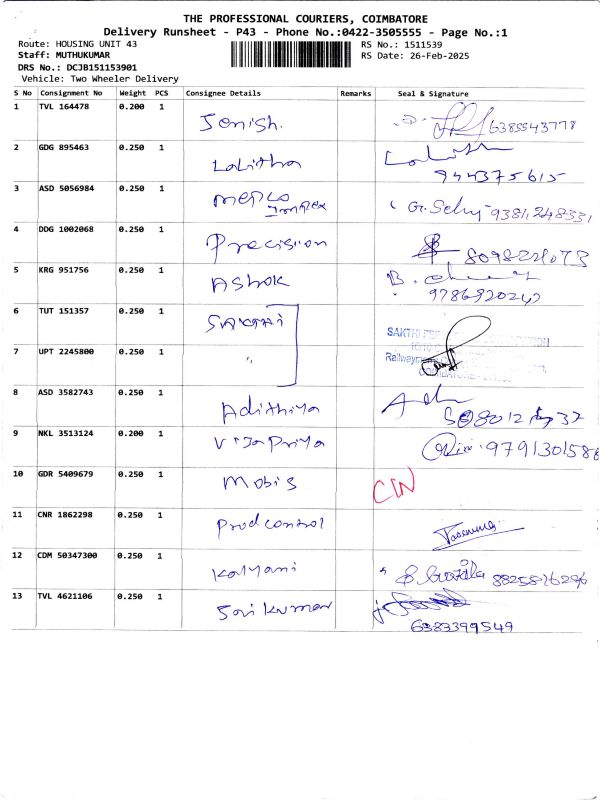 THE PROFESSIONAL COURIERS, COIMBATORE
Delivery Runsheet - P43 - Phone No.:0422-3505555 - Page No.:1
Route: HOUSING UNIT 43 RS No.: 1511539
Staff: MUTHUKUMAR RS Date: 26-Feb-2025
DRS No.: DCJB151153901
Vehicle: Two Wheeler Delivery
S No Consignment No Weight PCS Consignee Details Remarks Seal & Signature
1 TVL 164478 0.200 1 Jenish. 6385543778
2 GDG 895463 0.250 1 Lalitha
944375615
3 ASD 5056984 0.250 1 mepco
Impex G. Selvi 9381248331
4 DDG 1002068 0.250 1 Precision
5 KRG 951756 0.250 1 Ashok B.
9786920242
6 TUT 151357 0.250 1 SAKTHI SAKTHI
7 UPT 2245800 0.250 1 " Railway
8 ASD 3582743 0.250 1 Adithiya
9 NKL 3513124 0.200 1 Vijapriya 9791301586
10 GDR 5409679 0.250 1 Mobis CIN
11 CNR 1862298 0.250 1 Prodcontrol
12 CDM 50347300 0.250 1 Kalyani 8825816296
13 TVL 4621106 0.250 1 Sarikumar
6383399549